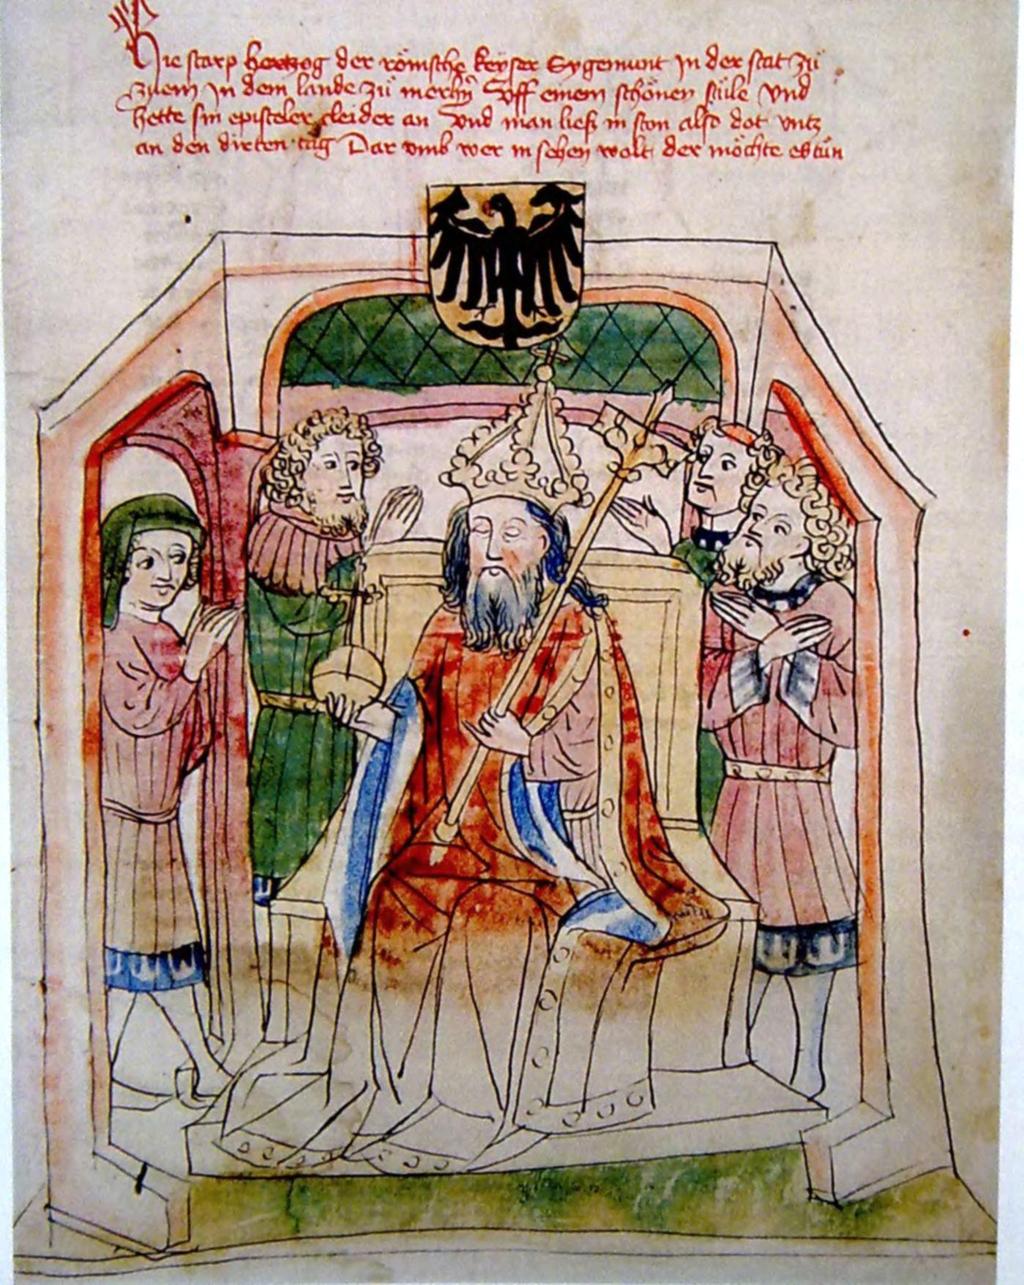 Hie starp hertzog der römsche keyser Sygemunt in der stat zü
znem in dem lande zü merhern Uff einem schönen stüle Und
hette sin episteler cleider an Und man ließ in ston also dot untz
an den dirten tag Dar umb wer in sehen wolt der möchte es tün